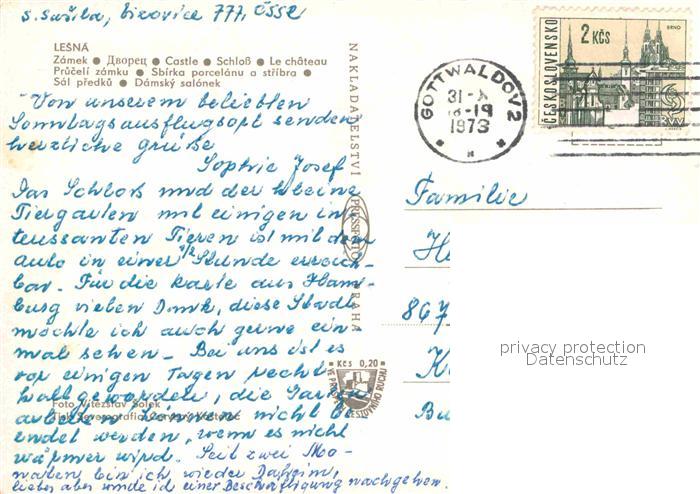 s. Sušila, Lízovice 777, ČSSR
LEŠNÁ
Zámek ● Дворец ● Castle ● Schloß ● Le château
Průčelí zámku ● Sbírka porcelánu a stříbra ●
Sál předků ● Dámský salónek
Von unserem beliebten
Sonntagsausflugsort senden
herzliche Grüße
Sophie Josef
Das Schloß und der kleine
Tiergarten mit einigen in-
teressanten Tieren ist mit dem
auto in einer 1/2 Stunde erreich-
bar. Für die karte aus Ham-
burg vielen Dank, diese Stadt
möchte ich auch gerne ein
mal sehen. Bei uns ist es
vor einigen Tagen recht
kalt geworden, die Garten
arbeiten können nicht b
endet werden, wenn es nicht
wärmer wird. Seit zwei Mo-
naten bin ich wieder Daheim,
lieber aber würde ich einer Beschäftigung nachgehen.
Foto Vítězslav Solek
NAKLADATELSTVÍ
PRESSFOTO
PRAHA
Kčs 0,20
GOTTWALDOV 2
31-X
18-19
1973
2 Kčs
BRNO
ČESKOSLOVENSKO
Familie
H
867
K
Bu
privacy protection
Datenschutz